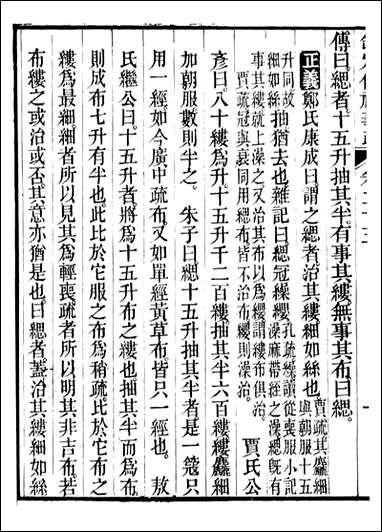 傳曰緦者十五升抽其半有事其縷無事其布曰緦。
正義鄭氏康成曰謂之緦者治其縷細如絲也賈疏其麤細
與朝服十五
升同故
細如絲
抽猶去也雜記曰緦冠繰纓孔疏繰讀從喪服小記
澡麻帶絰之澡緦旣有
事其縷就上澡之又治其布以爲纓謂縷布俱治
賈疏冠與衰同用緦布皆不治布纓則澡治。
賈氏公
彥曰八十縷爲升十五升千二百縷抽其半六百縷麤細
加朝服數則半之。朱子曰緦十五升抽其半者是一筬只
用一經如今廣中疏布又如單經黃草布皆只一經也。敖
氏繼公曰十五升者將爲十五升布之縷也抽其半而爲布
則成布七升有半也。此比於它服之布爲稍疏比於它布之
縷爲最細細者所以見其爲輕喪疏者所以明其非吉布。若
布縷之或治或否。其意亦猶是也。曰緦者。蓋治其縷細如絲